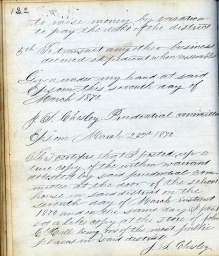 182
to raise money by taxation
to pay the debt of the district
5th To transact any other business
deemed expedient when assembled
Given under my hand at said
Epsom this seventh day of
March 1870
J. S. Chesley Prudential committee
Epsom March 22nd 1870
This certifies that I posted up a
true copy of the within warrant
attested by said prudential com-
mittee at the door of the school
house in said district on the
seventh day of March instant
1870 and on the same day I posted
a like copy at the store of John
C Hall being one of the most public
places in said district
J. S. Chesley